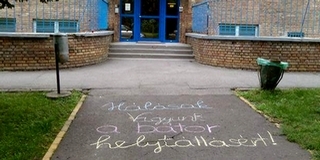 Hálásak
Vagyunk
a bátor
helytállásért!